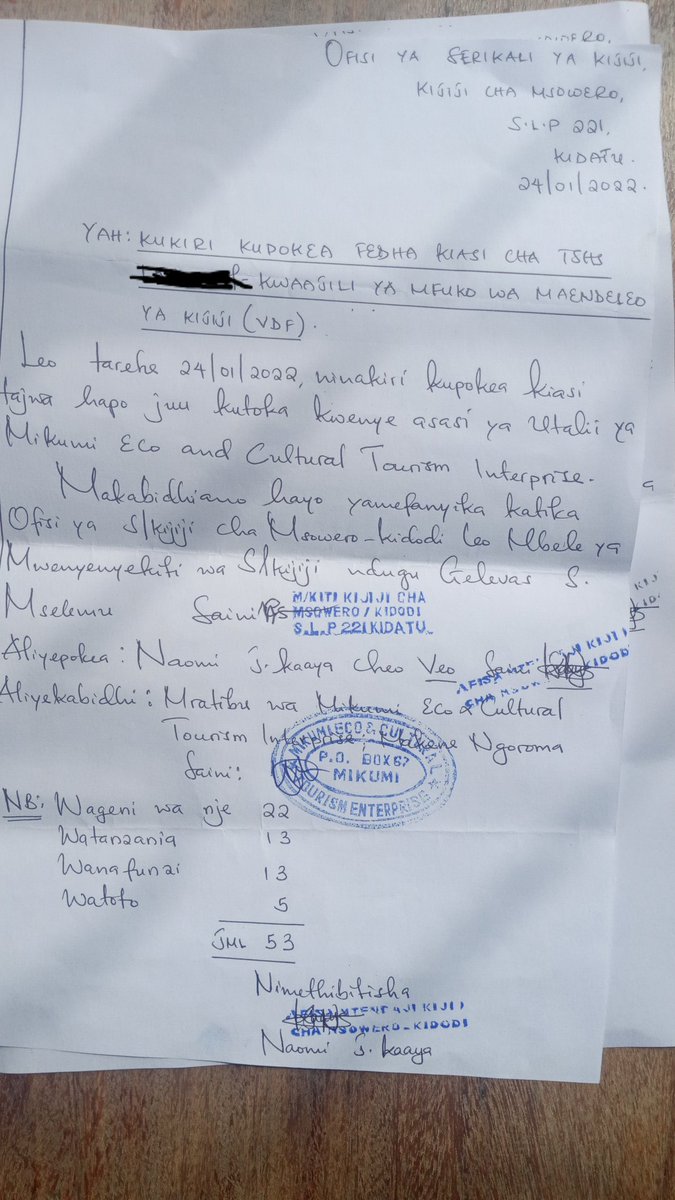 OFISI YA SERIKALI YA KIJIJI,
KIJIJI CHA MSOWERO,
S.L.P 221,
KIDATU.
24/01/2022.
YAH: KUKIRI KUPOKEA FEDHA KIASI CHA TSHS
KWAAJILI YA MFUKO WA MAENDELEO
YA KIJIJI (VDF).
Leo tarehe 24/01/2022, ninakiri kupokea kiasi
tajwa hapo juu kutoka kwenye asasi ya Utalii ya
Mikumi Eco and Cultural Tourism Interprise.
Makabidhiano hayo yamefanyika katika
Ofisi ya S/kijiji cha Msowero-kidodi leo Mbele ya
Mwenyenyekiti wa S/kijiji ndugu Gelevas S.
Mselemu Saini
M/KITI KIJIJI CHA
MSOWERO / KIDODI
S.L.P 221 KIDATU
Aliyepokea: Naomi J. kaaya cheo Veo Saini
Aliyekabidhi: Mratibu wa Mikumi Eco & Cultural
Tourism Interprise Makene Ngoroma
Saini:
MIKUMI ECO & CULTURAL
P.O. BOX 67
MIKUMI
TOURISM ENTERPRISE
NB: Wageni wa nje 22
Watanzania 13
Wanafunzi 13
Watoto 5
JML 53
Nimethibitisha
AFISA MTENDAJI KIJIJI
CHA MSOWERO-KIDODI
Naomi J. kaaya